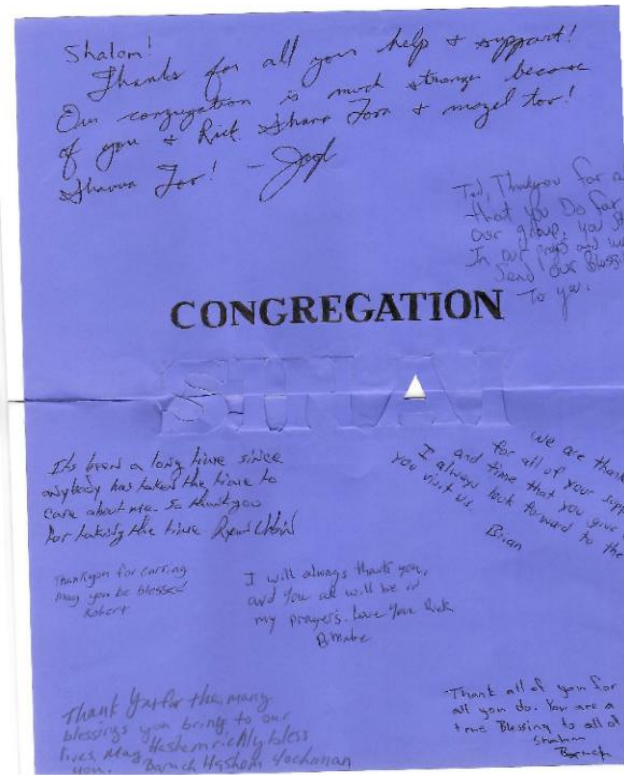 Shalom!
Thanks for all your help + support!
Our congregation is much stronger because
of you + Rick. Shana Tova + mazel tov!
Shanna Tov! -
Ted, Thankyou for a
that you Do for
our group, you
In our and
Send our Bless
To you.
CONGREGATION
SINAI
It's been a long time since
anybody has taken the time to
care about me. So thankyou
for taking the time
we are thank
for all of your supp
and time that you give
I always look forward to the
you visit us.
Brian
Thankyou for carring
may you be blessed
Robert
I will always thank you,
and you all will be in
my prayers. Love You Rick
Thank You for the many
blessings you bring to our
lives, May Hashem richly bless
you. Baruch Hashem Yochanan
Thank all of you for
all you do. You are a
true Blessing to all of
Baruch